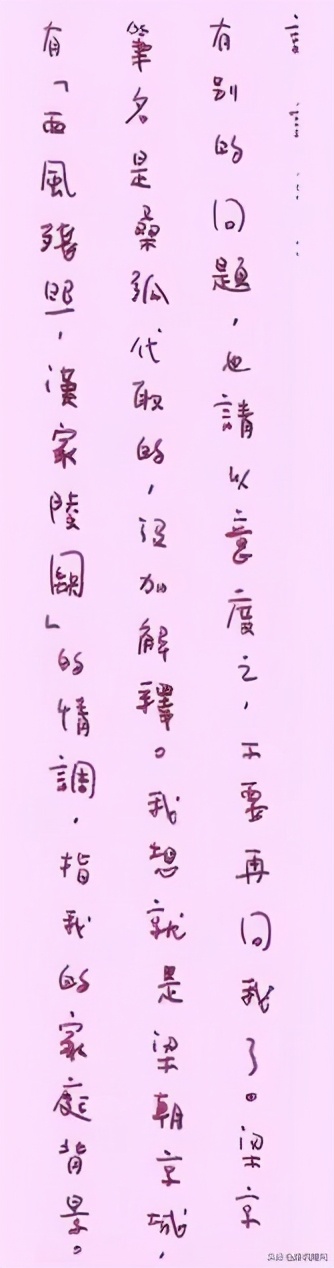 有别的问題，也請以意度之，不要再问我了。梁京
筆名是桑弧代取的，没加解釋。我想就是梁朝京城，
有「西風殘照，漢家陵闕」的情調，指我的家庭背景。